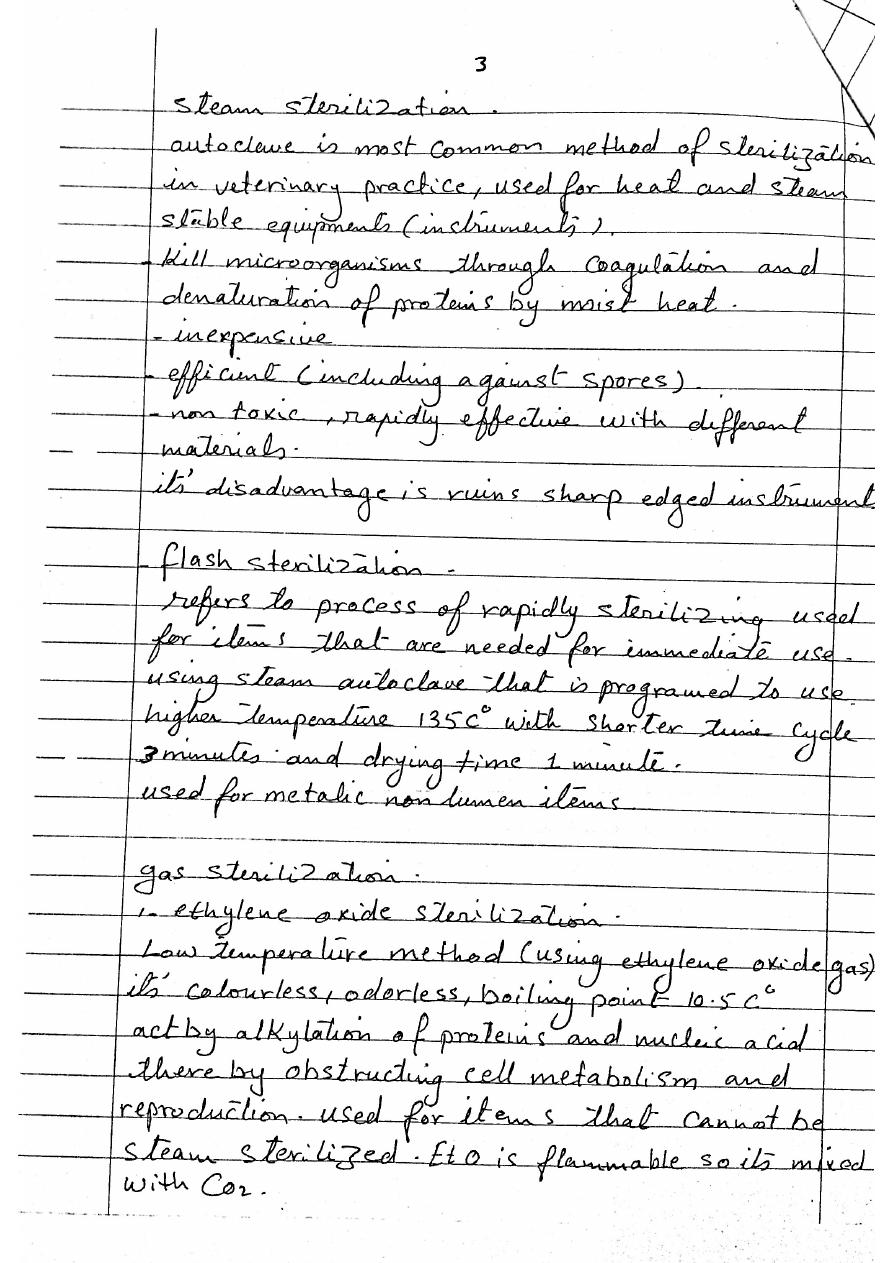 3
steam sterilization.
autoclave is most common method of sterilization
in veterinary practice, used for heat and steam
stable equipments (instruments).
- Kill microorganisms through coagulation and
denaturation of proteins by moist heat.
- inexpensive
- efficient (including against spores).
- non toxic, rapidly effective with different
materials.
its' disadvantage is ruins sharp edged instrument
- flash sterilization -
refers to process of rapidly sterilizing used
for items that are needed for immediate use.
using steam autoclave that is programed to use
higher temperature 135C° with shorter time cycle
3 minutes and drying time 1 minute.
used for metalic non lumen items
gas sterilization.
1- ethylene oxide sterilization.
Low temperature method (using ethylene oxide gas)
its' colourless, odorless, boiling point 10.5 C°
act by alkylation of proteins and nucleic acid
there by obstructing cell metabolism and
reproduction. used for items that cannot be
steam sterilized. EtO is flammable so its mixed
with CO2.